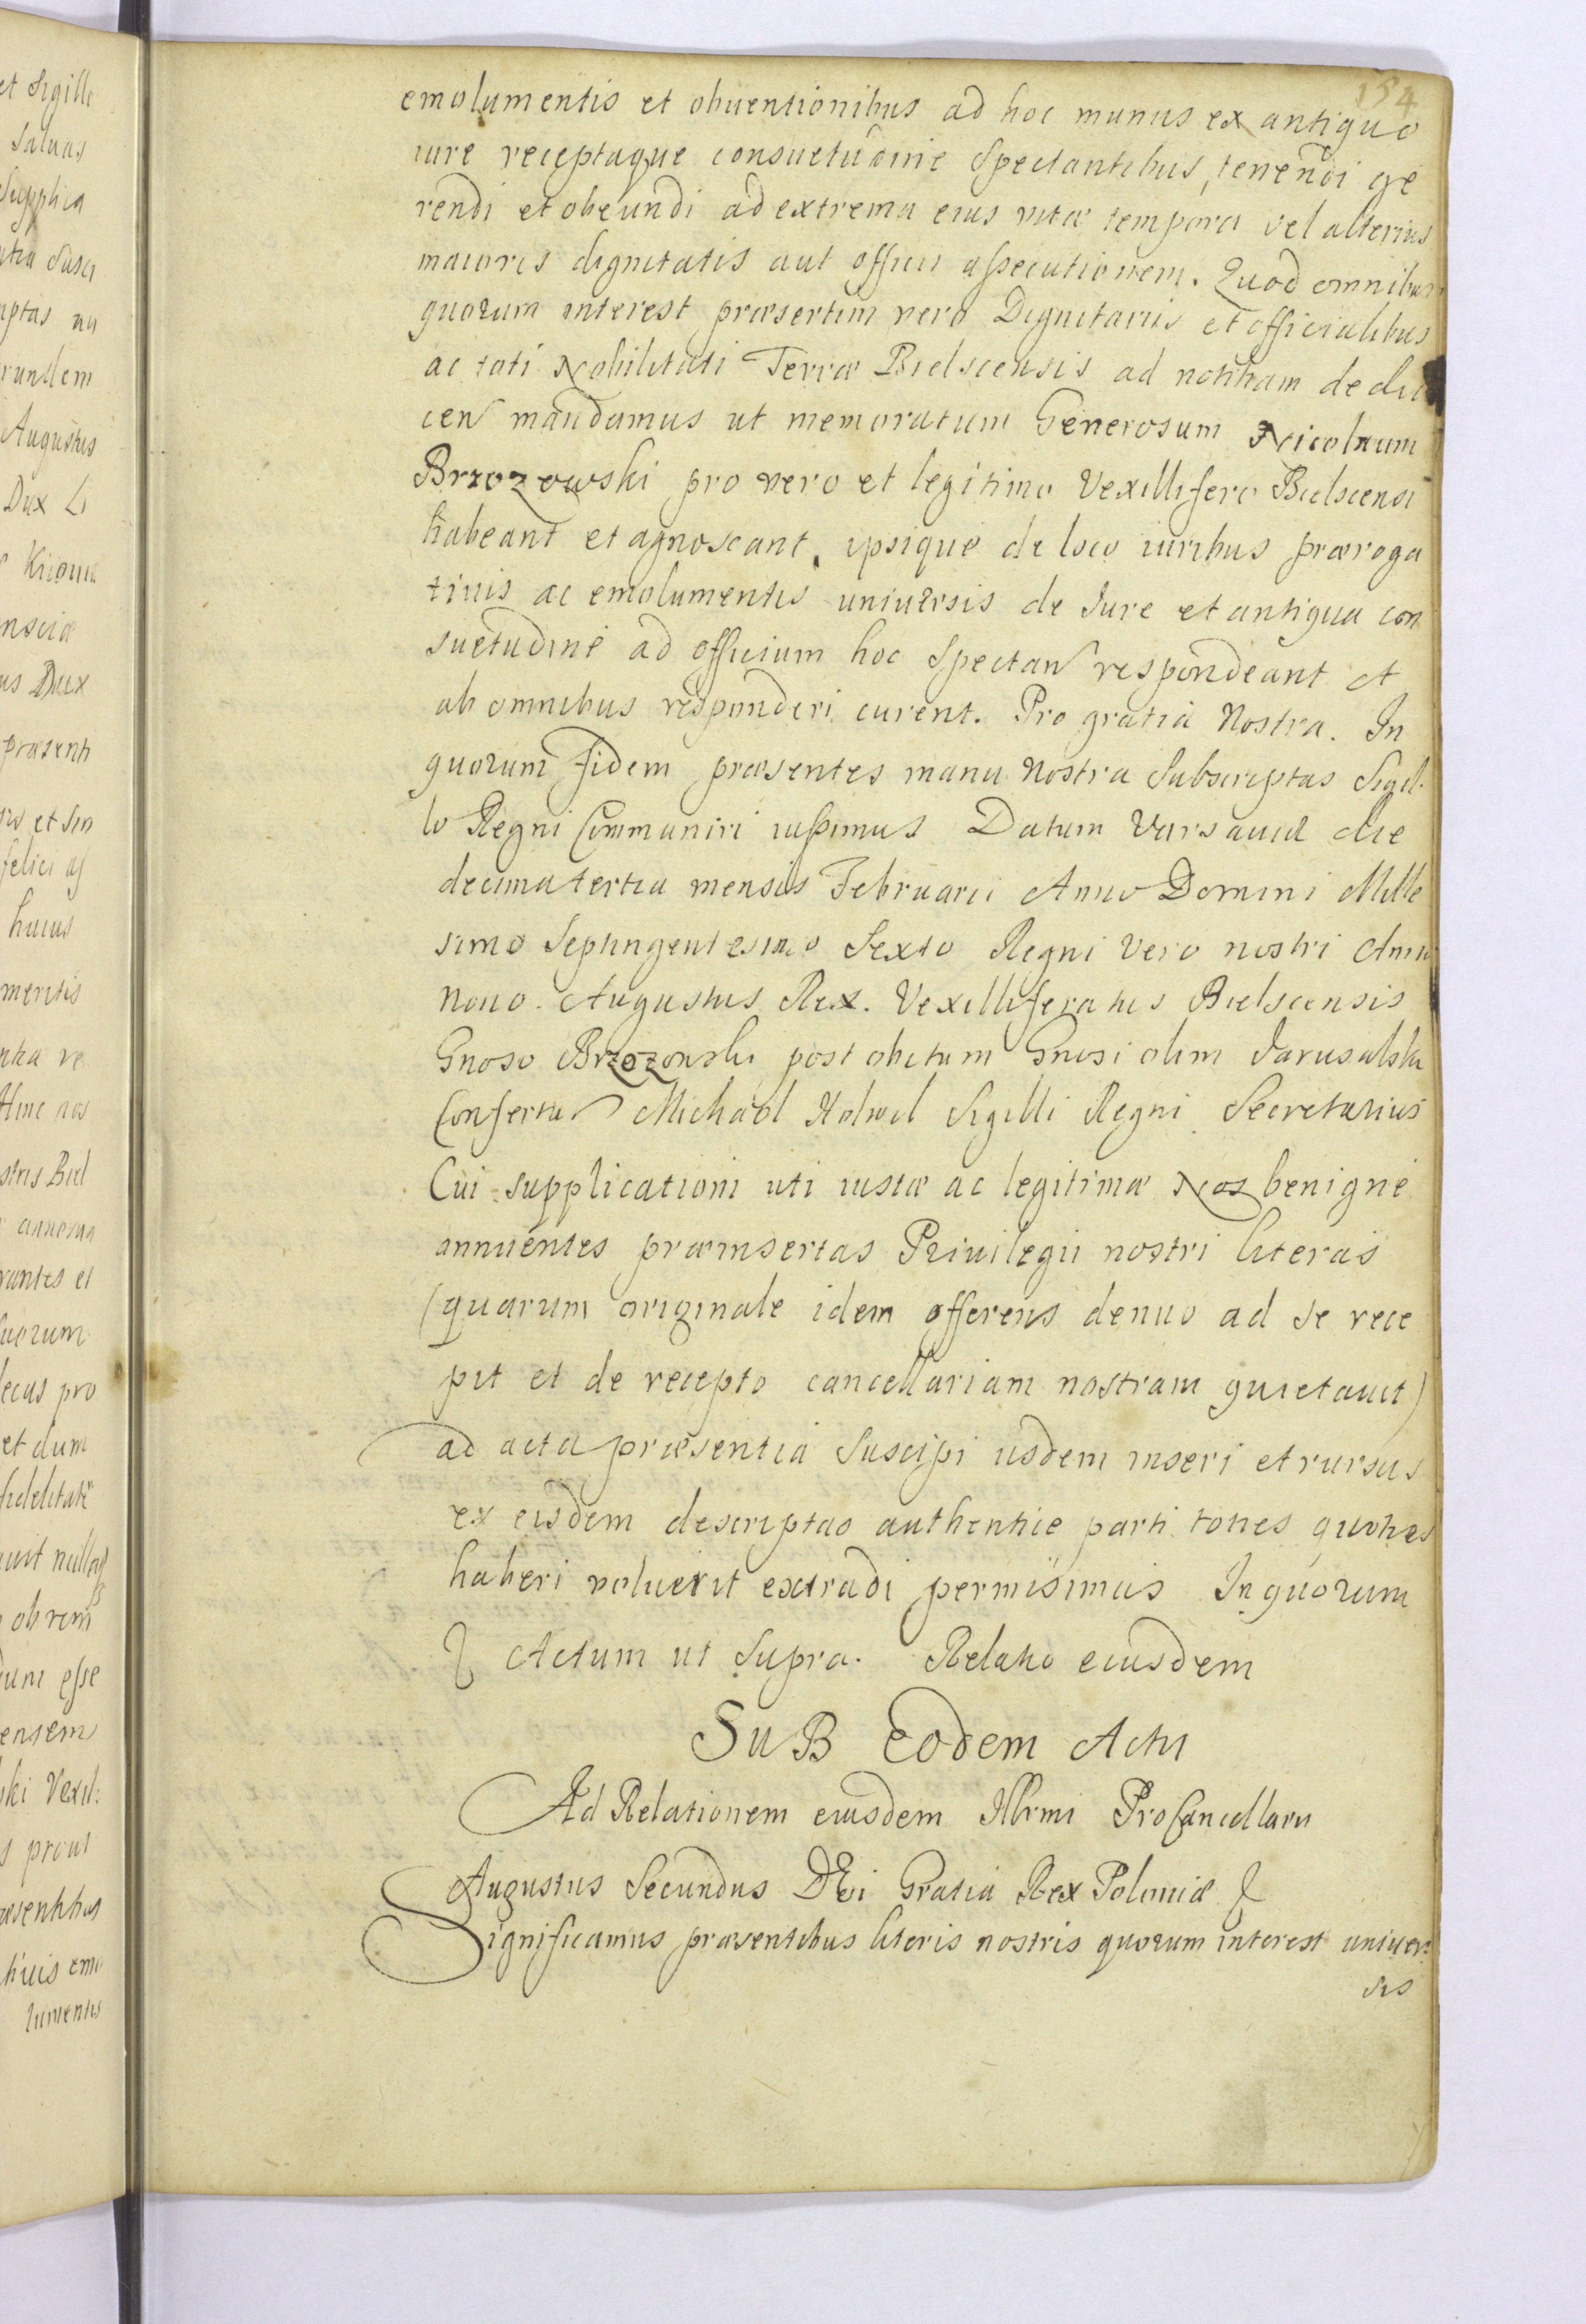 154
emolumentis et obuentionibus ad hoc munus ex antiquo
iure receptaque consuetudine Spectantibus, tenendi ge
rendi et obeundi ad extrema eius vitæ tempora vel alterius
maioris dignitatis aut officii assecutionem. Quod omnibus
quorum interest præsertim vero Dignitariis et officialibus
ac toti Nobilitati Terræ Bielscensis ad notitiam dedu
cen mandamus ut memoratum Generosum Nicolaum
Brzozowski pro vero et legitimo Vexillifero Bielscensi
habeant et agnoscant, ipsique de loco iuribus præroga
tiuis ac emolumentis uniuersis de Iure et antiqua con
suetudine ad officium hoc Spectan respondeant et
ab omnibus responderi curent. Pro gratia Nostra. In
quorum fidem præsentes manu Nostra Subscriptas Sigil
lo Regni Communiri iussimus Datum Varsauiæ die
decima tertia mensis Februarii Anno Domini Mille
simo Septingentesimo Sexto Regni Vero nostri Anno
Nono. Augustus Rex. Vexilliferatus Bielscensis
Gnoso Brzozowski post obitum Gnosi olim Jarusalski
Confertur Michaol Sigilli Regni Secretarius
Cui supplicationi uti iustæ ac legitimæ Nos benigne
annuentes præinsertas Priuilegii nostri literas
(quarum originale idem offerens denuo ad se rece
pit et de recepto cancellariam nostram quietauit)
ad acta præsentia Suscipi iisdem inseri et rursus
ex eisdem descriptas authentice parti toties quoties
haberi voluerit extradi permisimus In quorum
Actum ut Supra. Relatio eiusdem
SuB Eodem Actu
Ad Relationem eiusdem Illrmi ProCancellarii
Augustus Secundus DEi Gratia Rex Poloniæ
Significamus præsentibus literis nostris quorum interest uniuer
sis